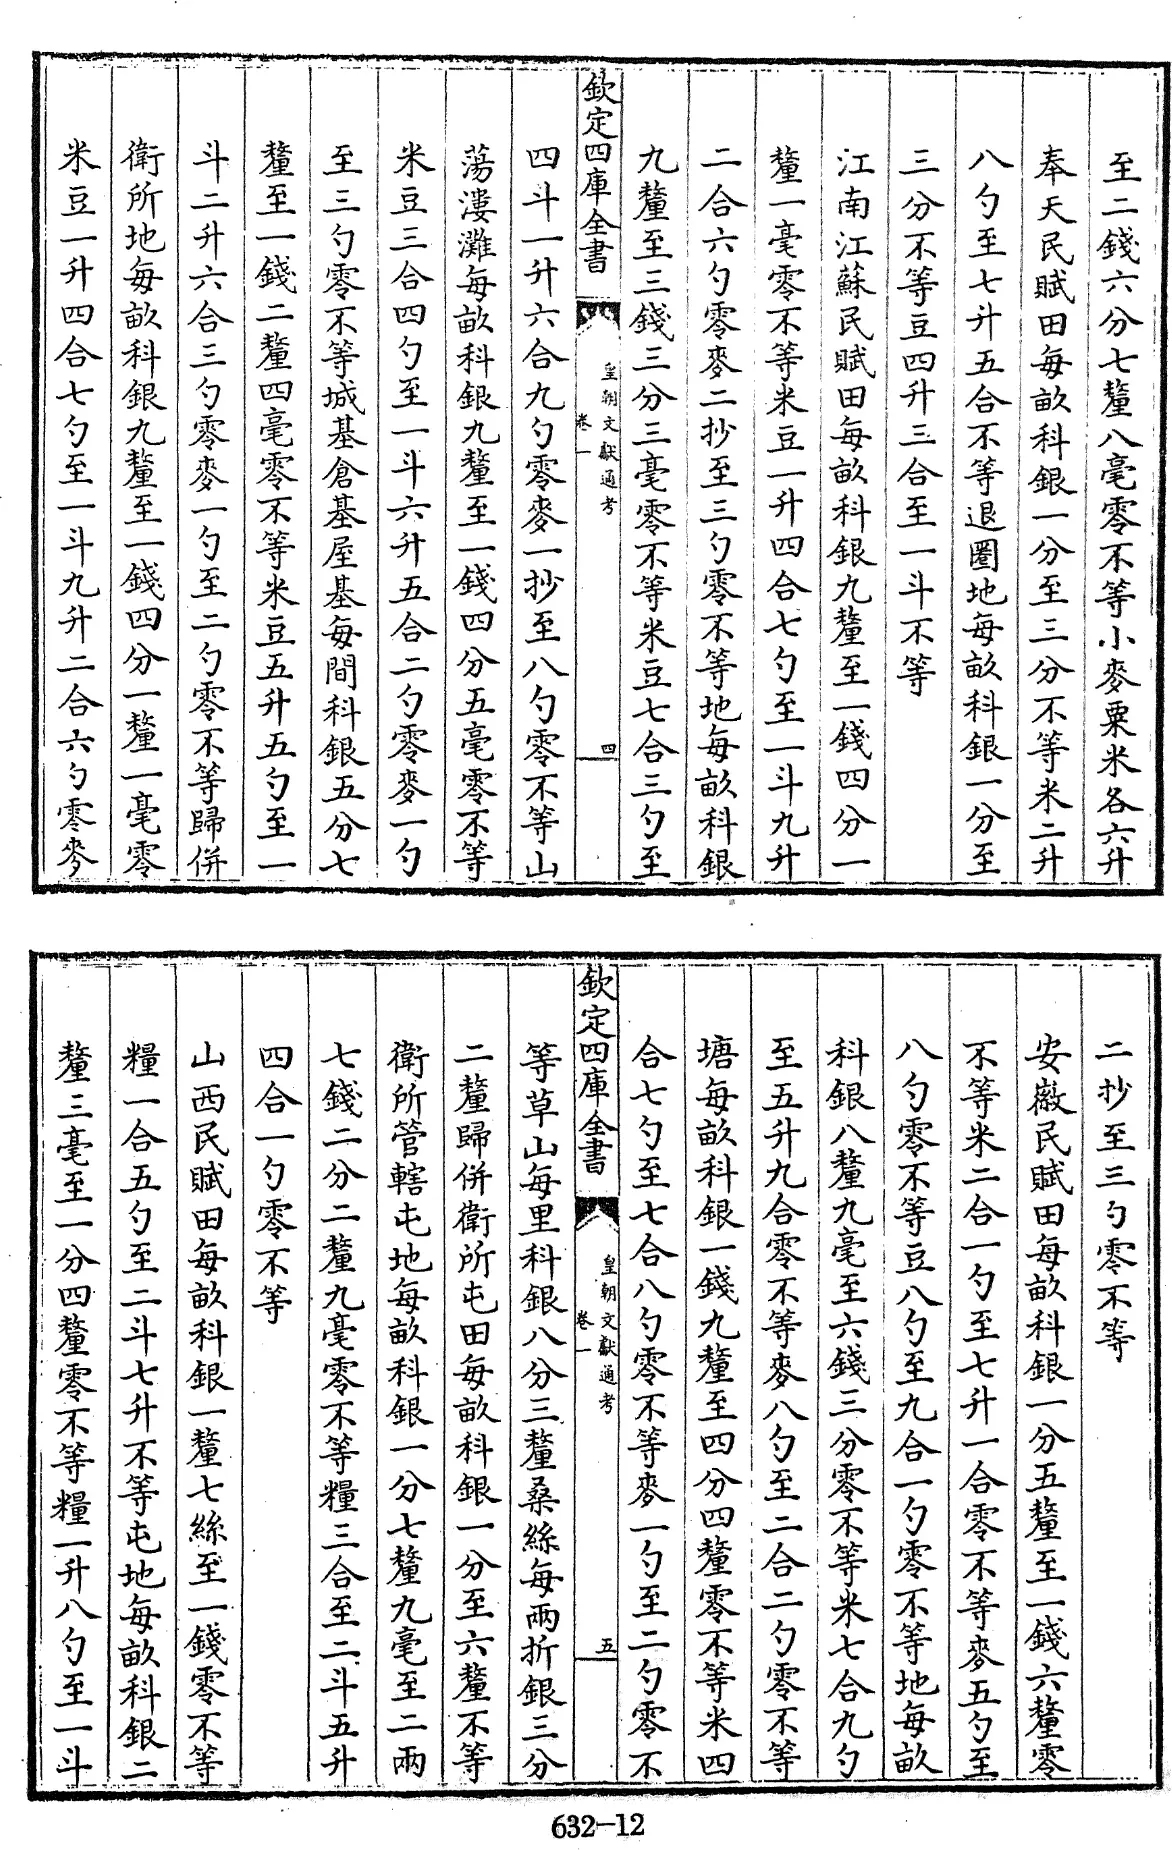 至二錢六分七釐八毫零不等小麥粟米各六升
奉天民賦田每畝科銀一分至三分不等米二升
八勺至七升五合不等退圈地每畝科銀一分至
三分不等豆四升三合至一斗不等
江南江蘇民賦田每畝科銀九釐至一錢四分一
釐一毫零不等米豆一升四合七勺至一斗九升
二合六勺零麥二抄至三勺零不等地每畝科銀
九釐至三錢三分三毫零不等米豆七合三勺至
欽定四庫全書
皇朝文獻通考
卷一
四
四斗一升六合九勺零麥一抄至八勺零不等山
蕩漊灘每畝科銀九釐至一錢四分五毫零不等
米豆三合四勺至一斗六升五合二勺零麥一勺
至三勺零不等城基倉基屋基每間科銀五分七
釐至一錢二釐四毫零不等米豆五升五勺至一
斗二升六合三勺零麥一勺至二勺零不等歸併
衛所地每畝科銀九釐至一錢四分一釐一毫零
米豆一升四合七勺至一斗九升二合六勺零麥
二抄至三勺零不等
安徽民賦田每畝科銀一分五釐至一錢六釐零
不等米二合一勺至七升一合零不等麥五勺至
八勺零不等豆八勺至九合一勺零不等地每畝
科銀八釐九毫至六錢三分零不等米七合九勺
至五升九合零不等麥八勺至二合二勺零不等
塘每畝科銀一錢九釐至四分四釐零不等米四
合七勺至七合八勺零不等麥一勺至二勺零不
欽定四庫全書
皇朝文獻通考
卷一
五
等草山每里科銀八分三釐桑絲每兩折銀三分
二釐歸併衛所屯田每畝科銀一分至六釐不等
衛所管轄屯地每畝科銀一分七釐九毫至二兩
七錢二分二釐九毫零不等糧三合至二斗五升
四合一勺零不等
山西民賦田每畝科銀一釐七絲至一錢零不等
糧一合五勺至二斗七升不等屯地每畝科銀二
釐三毫至一分四釐零不等糧一升八勺至一斗
632-12